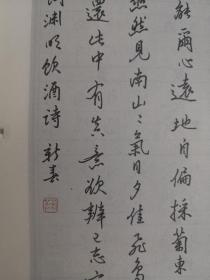 能尔心遠地自偏採菊東
悠然見南山山氣日夕佳飛鳥
還此中有真意欲辨已忘言
陶渊明飲酒詩 新春